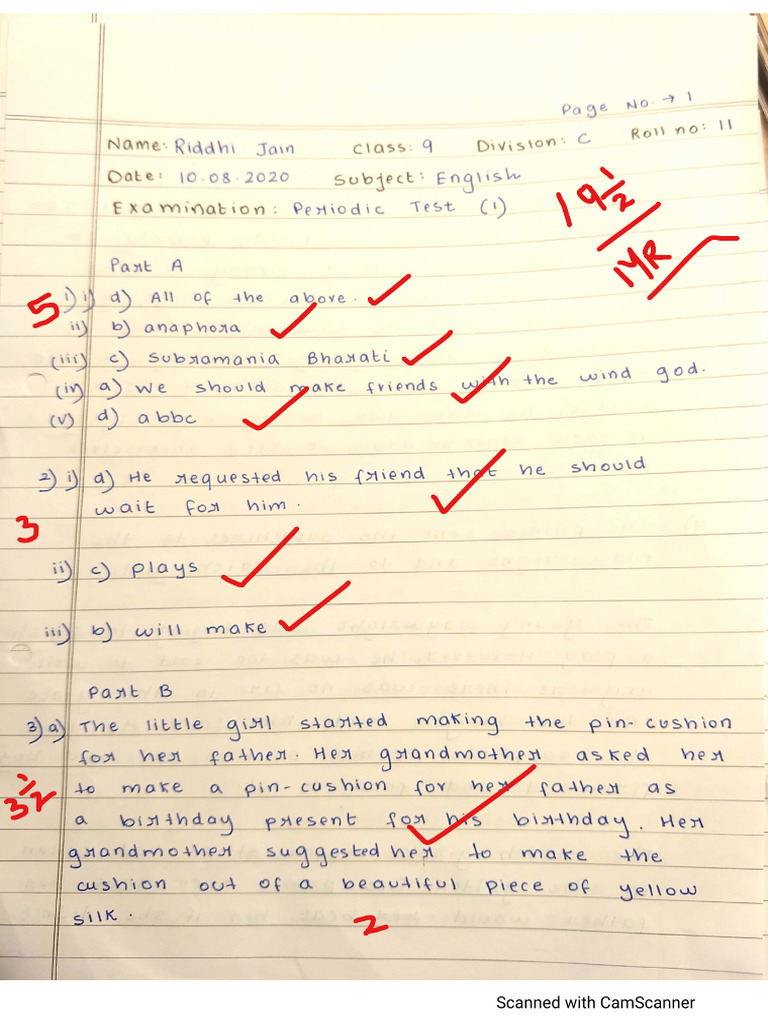 Page No. → 1
Name: Riddhi Jain Class: 9 Division: C Roll no: 11
Date: 10.08.2020 Subject: English
Examination: Periodic Test (1)
19 1/2
Part A
5
1) i) d) All of the above.
ii) b) anaphora
(iii) c) Subramania Bharati
(iv) a) We should make friends with the wind god.
(v) d) abbc
2) i) d) He requested his friend that he should
wait for him.
3
ii) c) plays
iii) b) will make
Part B
3) a) The little girl started making the pin-cushion
for her father. Her grandmother asked her
3 1/2
to make a pin-cushion for her father as
a birthday present for his birthday. Her
grandmother suggested her, to make the
cushion out of a beautiful piece of yellow
silk.
2
Scanned with CamScanner